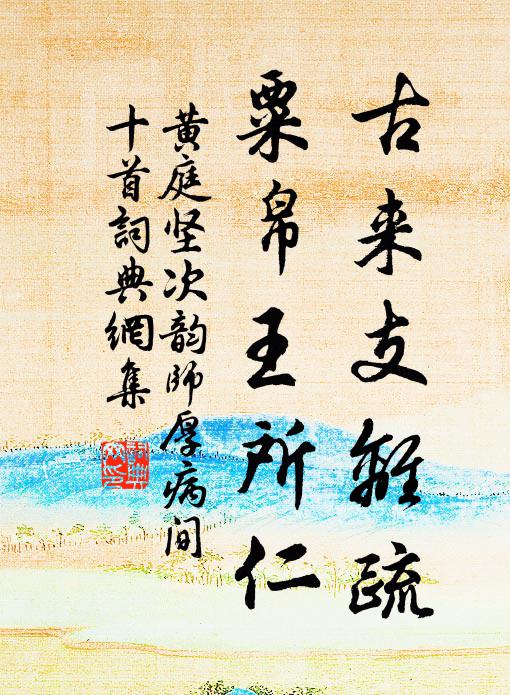 古来支離疏
粟帛王所仁
黄庭坚次韵師厚病间
十首詞典網集